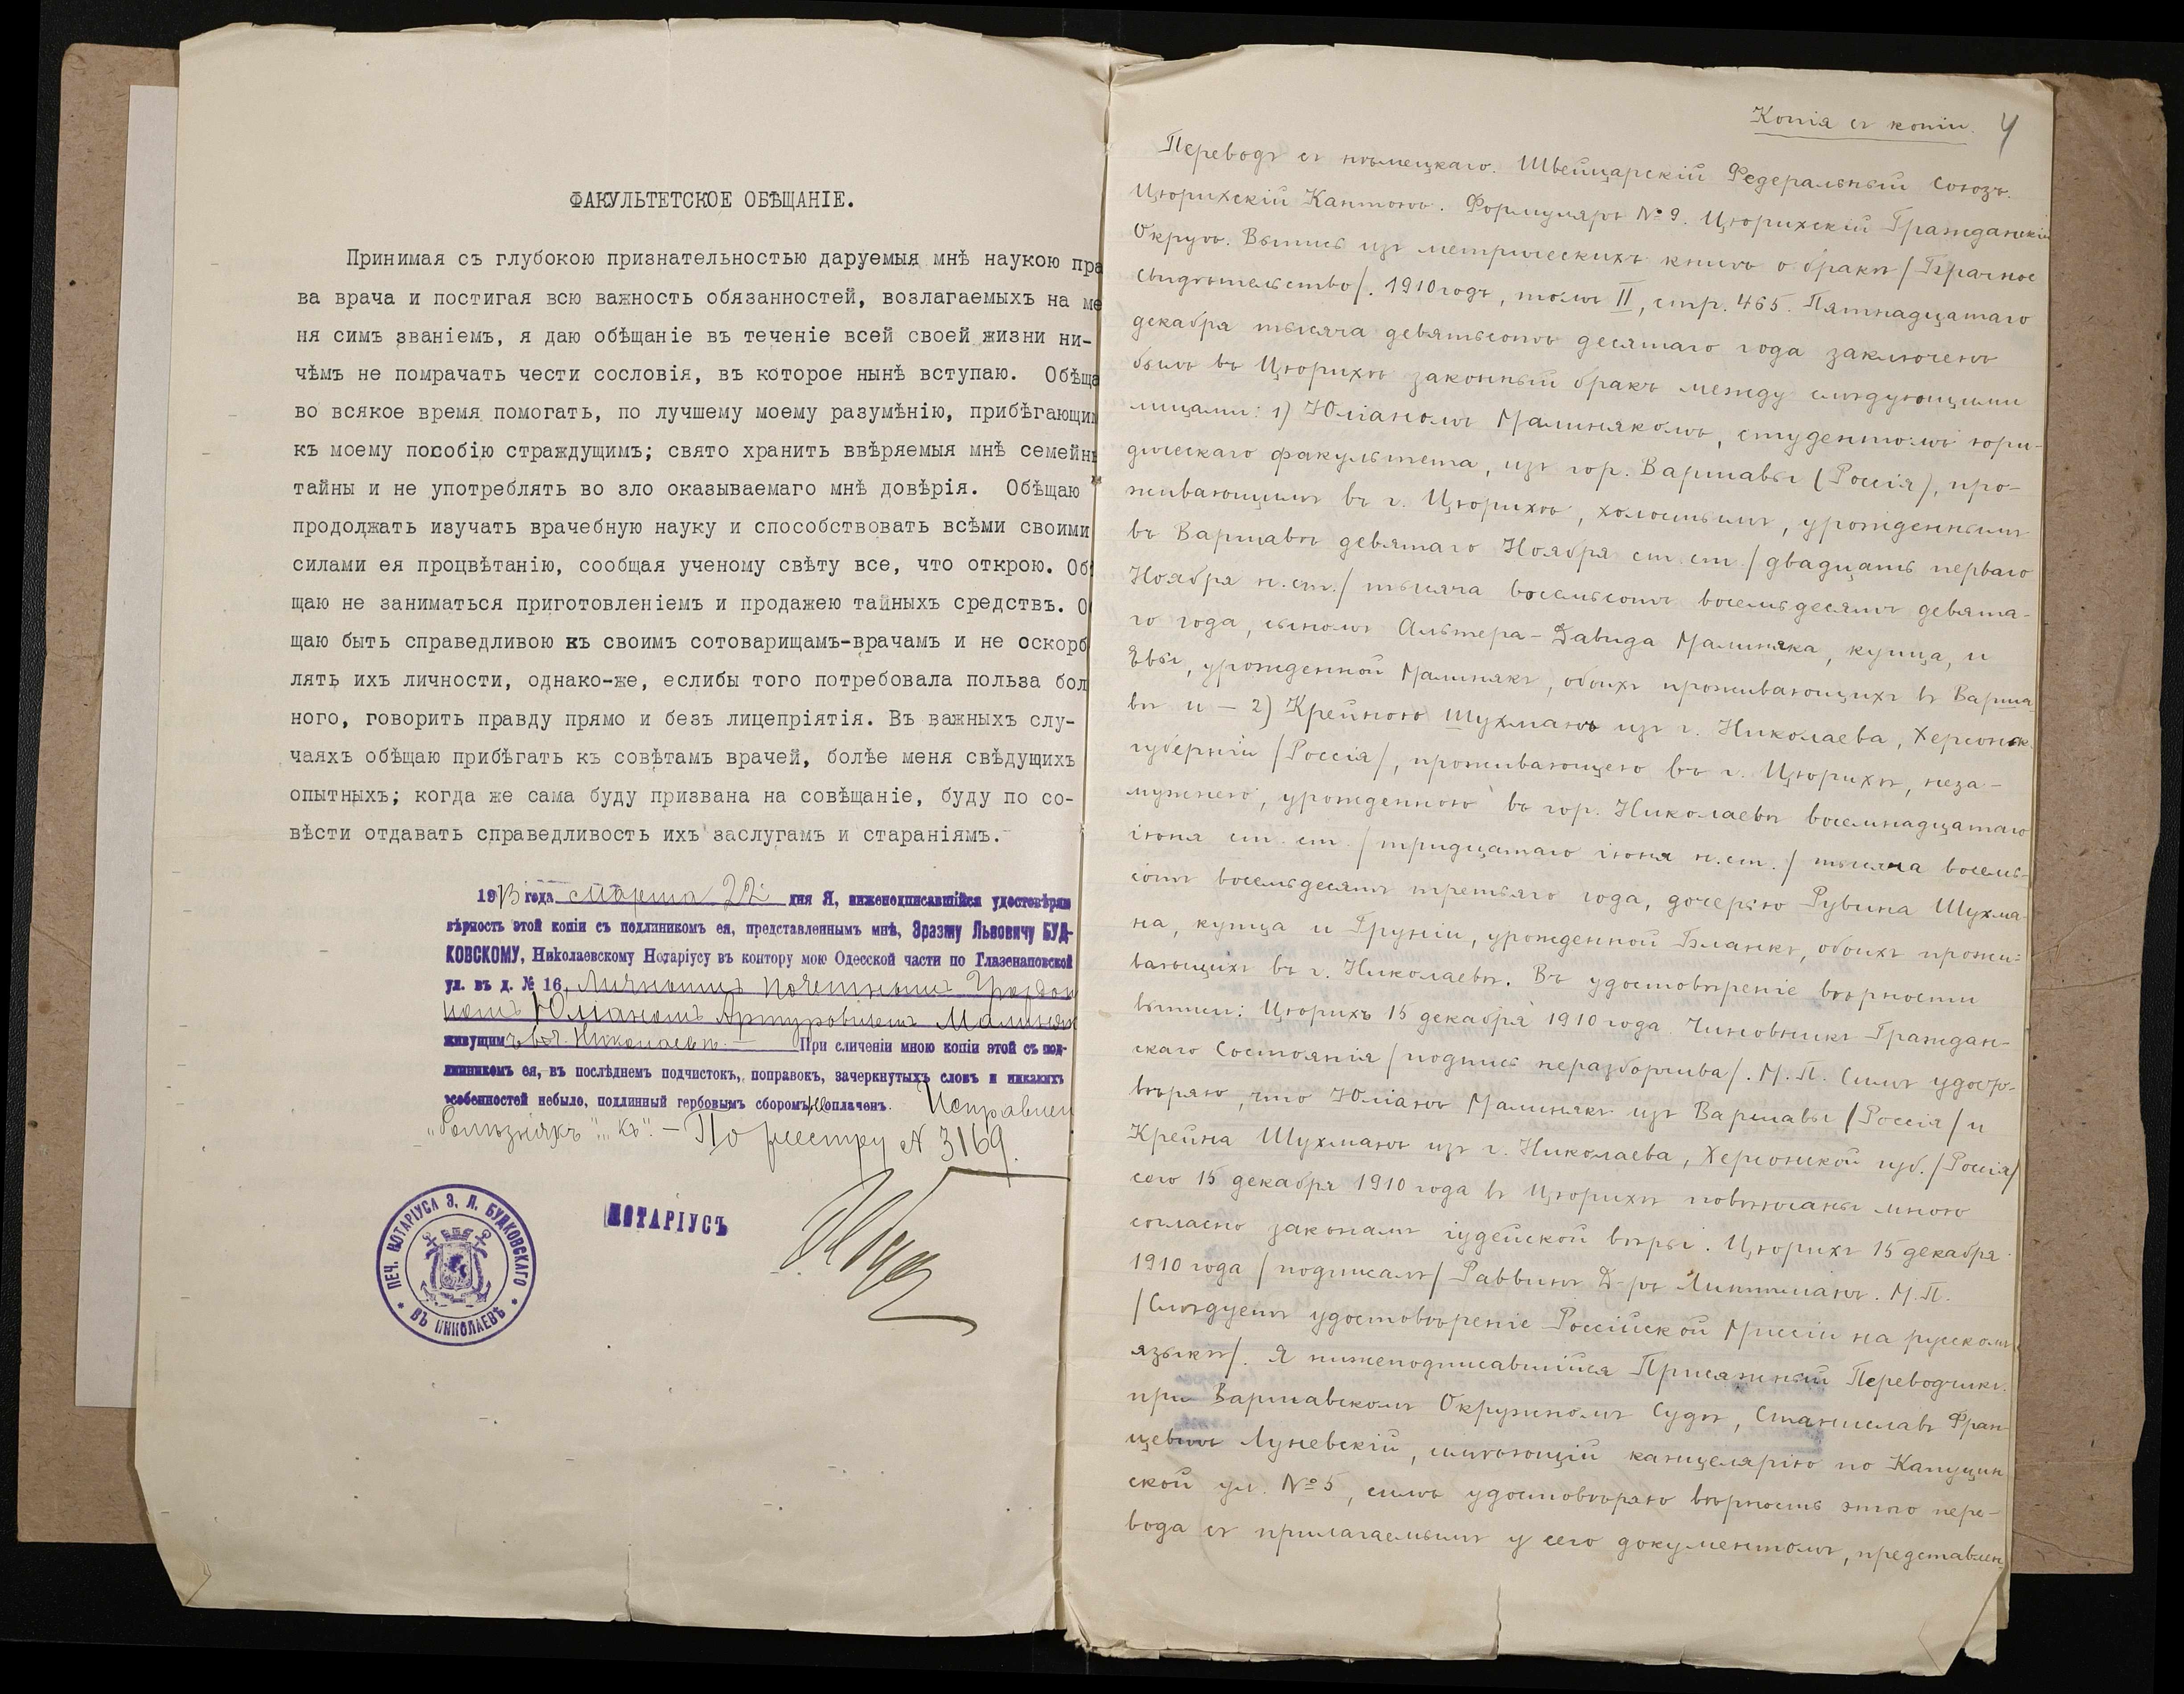 ФАКУЛЬТЕТСКОЕ ОБѢЩАНІЕ.
Принимая съ глубокою признательностью даруемыя мнѣ наукою пра
ва врача и постигая всю важность обязанностей, возлагаемыхъ на ме
ня симъ званіемъ, я даю обѣщаніе въ теченіе всей своей жизни ни-
чѣмъ не помрачать чести сословія, въ которое нынѣ вступаю. Обѣща
во всякое время помогать, по лучшему моему разумѣнію, прибѣгающим
къ моему пособію страждущимъ; свято хранить ввѣряемыя мнѣ семейны
тайны и не употреблять во зло оказываемаго мнѣ довѣрія. Обѣщаю
продолжать изучать врачебную науку и способствовать всѣми своими
силами ея процвѣтанію, сообщая ученому свѣту все, что открою. Об
щаю не заниматься приготовленіемъ и продажею тайныхъ средствъ. О
щаю быть справедливою къ своимъ сотоварищамъ-врачамъ и не оскорб
лять ихъ личности, однако-же, еслибы того потребовала польза бол
ного, говорить правду прямо и безъ лицепріятія. Въ важныхъ слу-
чаяхъ обѣщаю прибѣгать къ совѣтамъ врачей, болѣе меня свѣдущихъ
опытныхъ; когда же сама буду призвана на совѣщаніе, буду по со-
вѣсти отдавать справедливость ихъ заслугамъ и стараніямъ.
1913 года Марта 22 дня Я, нижеподписавшійся удостовѣряю
вѣрность этой копіи съ подлинникомъ ея, представленнымъ мнѣ, Эразму Львовичу БУД-
КОВСКОМУ, Николаевскому Нотаріусу въ контору мою Одесской части по Глазенаповской
ул. въ д. № 16, Личнымъ Почетнымъ Граждан
номъ Юліаномъ Артуровичемъ Малиняк
живущимъ въ г. Николаевѣ. — При сличеніи мною копіи этой съ под-
линникомъ ея, въ послѣднемъ подчистокъ, поправокъ, зачеркнутыхъ словъ и никакихъ
особенностей небыло, подлинный гербовымъ сборомъ не оплаченъ. Исправлен
"къ". — По реестру № 3169.
НОТАРІУСЪ
ПЕЧ. НОТАРІУСА Э. Л. БУДКОВСКАГО * ВЪ НИКОЛАЕВѢ *
Копія съ копіи. 4
Переводъ съ нѣмецкаго. Швейцарскій Федеральный Союзъ.
Цюрихскій Кантонъ. Формуляръ № 9. Цюрихскій Гражданскій
Округъ. Выпись изъ метрическихъ книгъ о бракѣ /Брачное
свидѣтельство/. 1910 годъ, томъ II, стр. 465. Пятнадцатаго
декабря тысяча девятьсотъ десятаго года заключенъ
былъ въ Цюрихѣ законный бракъ между слѣдующими
лицами: 1) Юліаномъ Малинякомъ, студентомъ юри-
дическаго факультета, изъ гор. Варшавы (Россія), про-
живающимъ въ г. Цюрихѣ, холостымъ, урожденнымъ
въ Варшавѣ девятаго Ноября ст. ст. /двадцать перваго
Ноября н. ст./ тысяча восемьсотъ восемьдесятъ девята-
го года, сыномъ Альтера-Давида Малиняка, купца, и
Евы, урожденной Малинякъ, обоихъ проживающихъ въ Варша-
вѣ и — 2) Крейною Шухманъ изъ г. Николаева, Херсонск.
губерніи /Россія/, проживающею въ г. Цюрихѣ, неза-
мужнею, урожденною въ гор. Николаевѣ восемнадцатаго
іюня ст. ст. /тридцатаго іюня н. ст./ тысяча восемь-
сотъ восемьдесятъ третьяго года, дочерью Рувина Шухма-
на, купца и Груніи, урожденной Бланкъ, обоихъ прожи-
вающихъ въ г. Николаевѣ. Въ удостовѣреніе вѣрности
выписи: Цюрихъ 15 декабря 1910 года. Чиновникъ Граждан-
скаго Состоянія /подпись неразборчива/. М. П. Симъ удосто-
вѣряю, что Юліанъ Малинякъ изъ Варшавы /Россія/ и
Крейна Шухманъ изъ г. Николаева, Херсонской губ. /Россія/
сего 15 декабря 1910 года въ Цюрихѣ повѣнчаны мною
согласно законамъ іудейской вѣры. Цюрихъ 15 декабря
1910 года /подписалъ/ Раввинъ Д-ръ Литтманъ. М. П.
/Слѣдуетъ удостовѣреніе Россійской Миссіи на русскомъ
языкѣ/. Я нижеподписавшійся Присяжный Переводчикъ
при Варшавскомъ Окружномъ Судѣ, Станиславъ Фран-
цевичъ Луневскій, имѣющій канцелярію по Капуцин
ской ул. № 5, симъ удостовѣряю вѣрность этого пере-
вода съ прилагаемымъ у сего документомъ, представлен